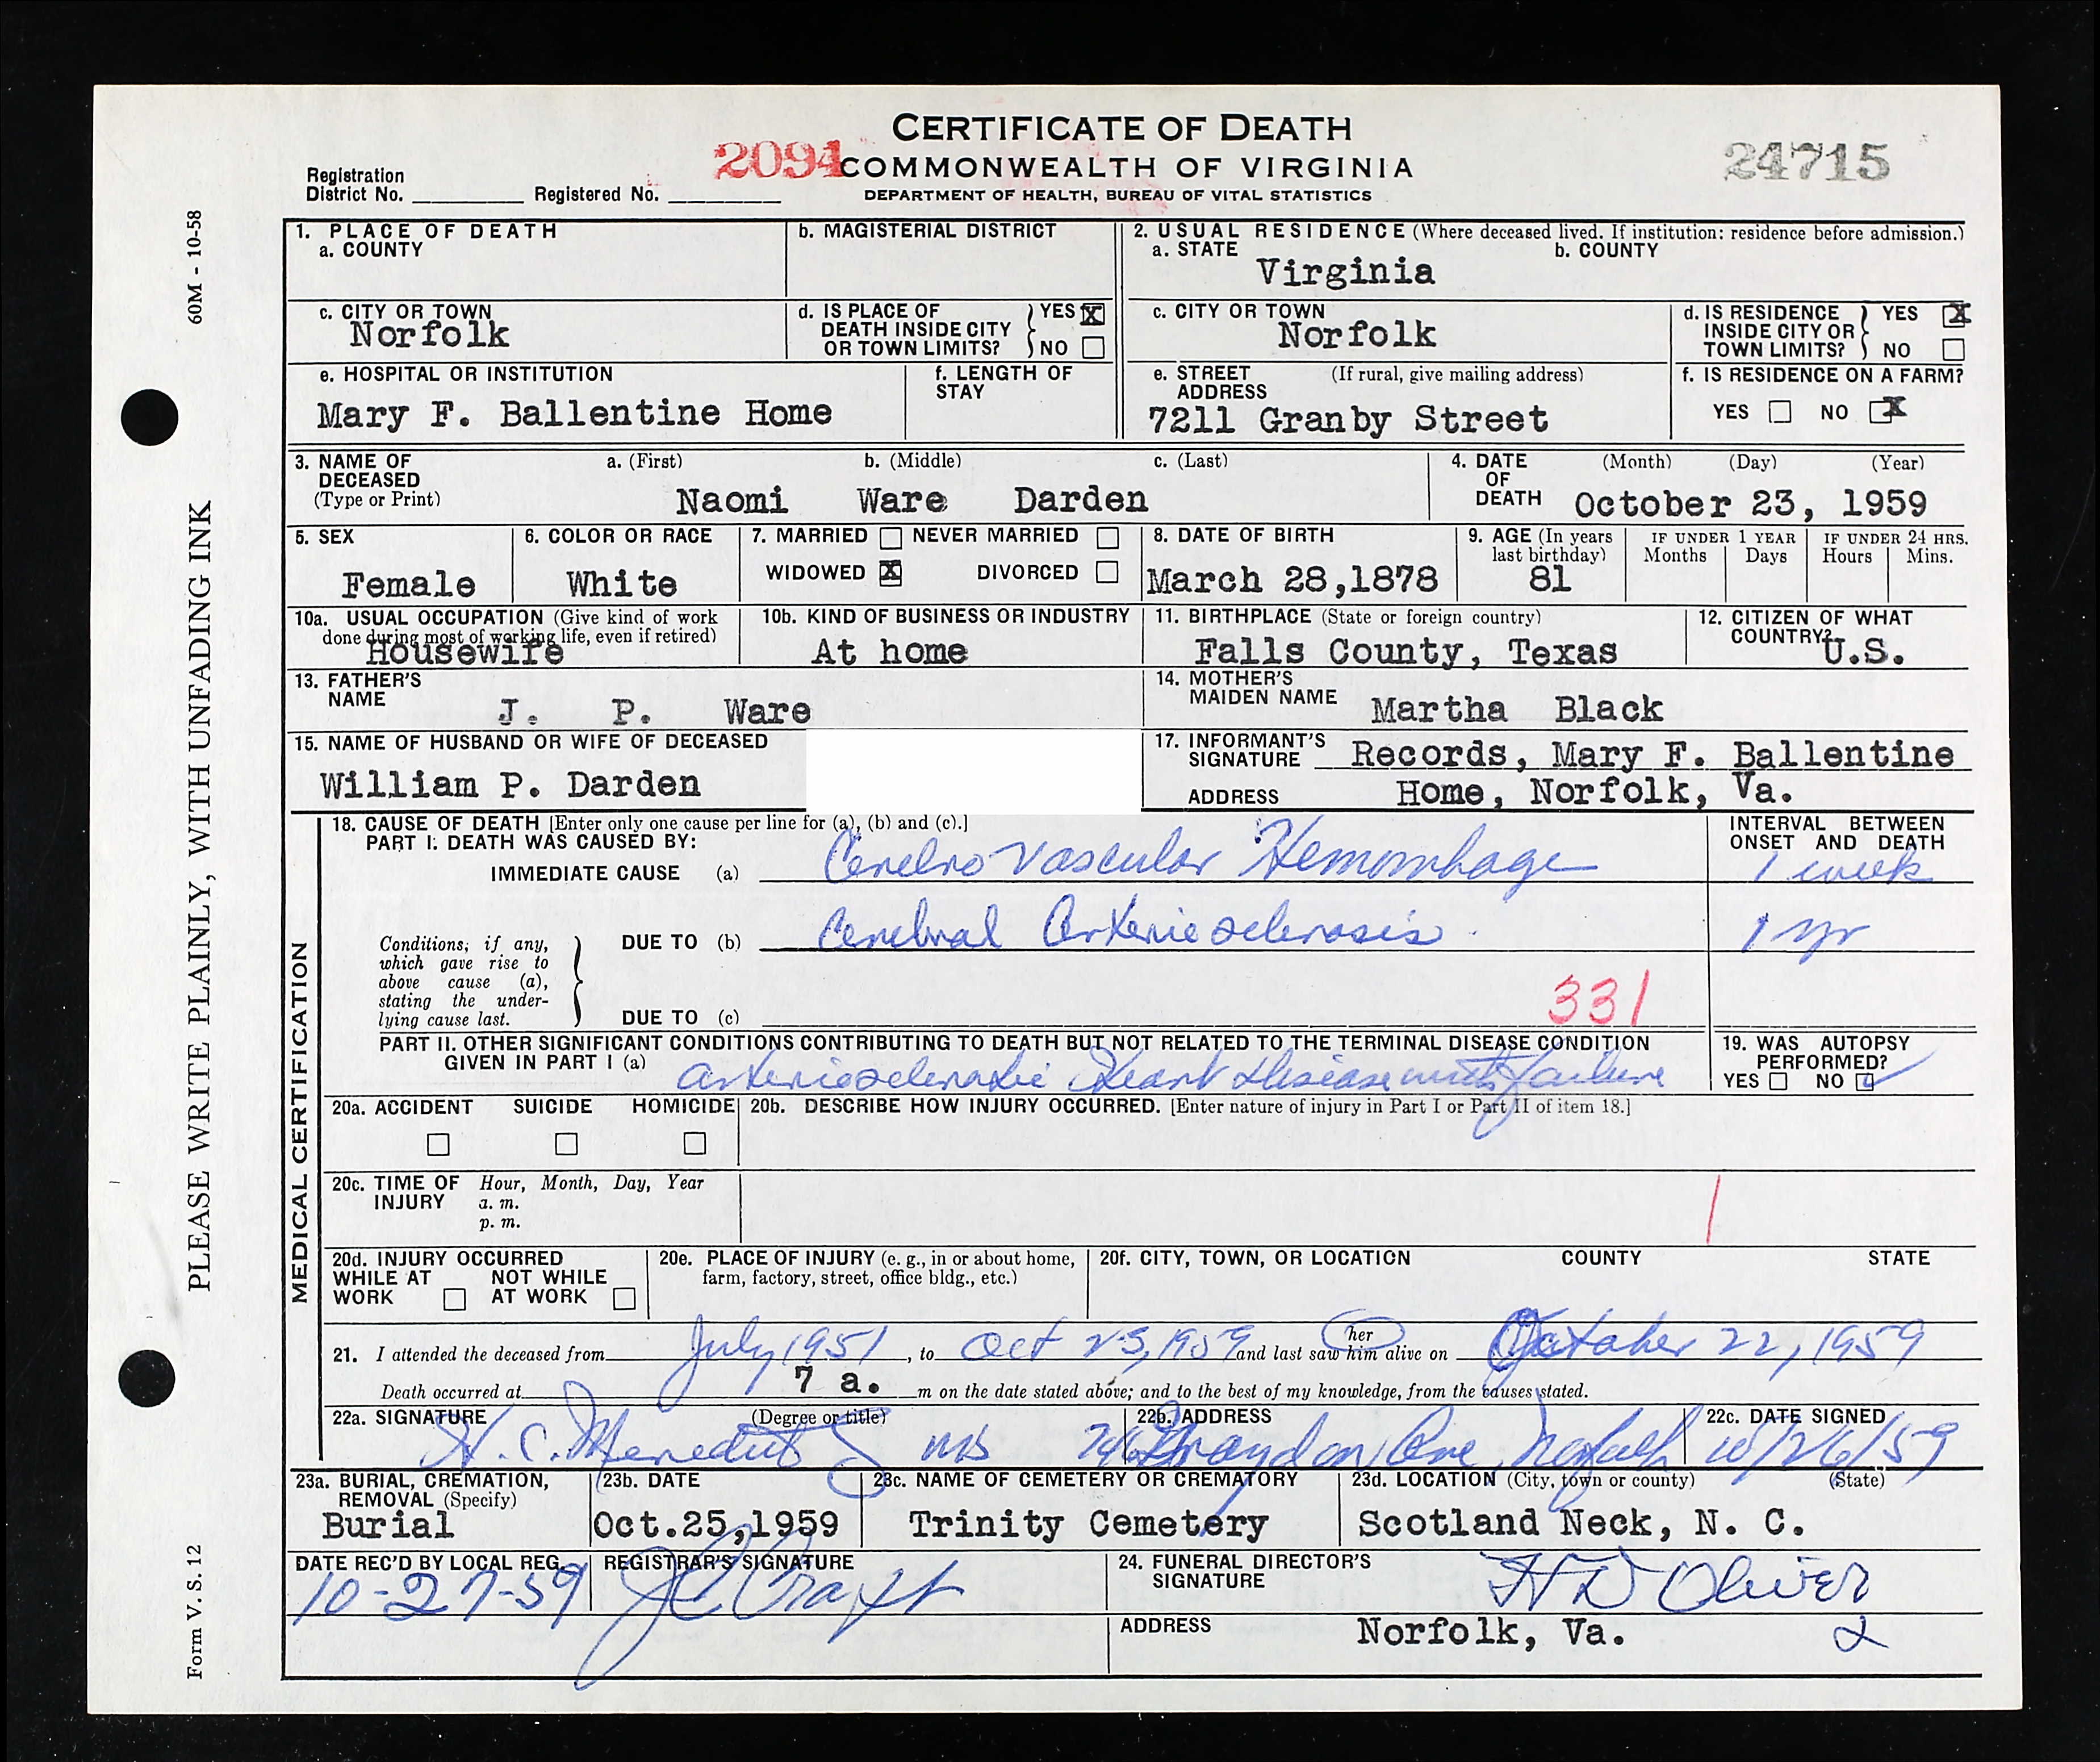 CERTIFICATE OF DEATH
2094 COMMONWEALTH OF VIRGINIA 24715
DEPARTMENT OF HEALTH, BUREAU OF VITAL STATISTICS
Registration
District No. Registered No.
60M - 10-58
PLEASE WRITE PLAINLY, WITH UNFADING INK
Form V. S. 12
1. PLACE OF DEATH
a. COUNTY
b. MAGISTERIAL DISTRICT
2. USUAL RESIDENCE (Where deceased lived. If institution: residence before admission.)
a. STATE b. COUNTY
Virginia
c. CITY OR TOWN
Norfolk
d. IS PLACE OF YES X
DEATH INSIDE CITY
OR TOWN LIMITS? NO
c. CITY OR TOWN
Norfolk
d. IS RESIDENCE YES X
INSIDE CITY OR
TOWN LIMITS? NO
e. HOSPITAL OR INSTITUTION
Mary F. Ballentine Home
f. LENGTH OF
STAY
e. STREET (If rural, give mailing address)
ADDRESS
7211 Granby Street
f. IS RESIDENCE ON A FARM?
YES NO X
3. NAME OF a. (First) b. (Middle) c. (Last)
DECEASED
(Type or Print)
Naomi Ware Darden
4. DATE (Month) (Day) (Year)
OF
DEATH October 23, 1959
5. SEX
Female
6. COLOR OR RACE
White
7. MARRIED NEVER MARRIED
WIDOWED X DIVORCED
8. DATE OF BIRTH
March 28,1878
9. AGE (In years
last birthday)
81
IF UNDER 1 YEAR
Months Days
IF UNDER 24 HRS.
Hours Mins.
10a. USUAL OCCUPATION (Give kind of work
done during most of working life, even if retired)
Housewife
10b. KIND OF BUSINESS OR INDUSTRY
At home
11. BIRTHPLACE (State or foreign country)
Falls County, Texas
12. CITIZEN OF WHAT
COUNTRY?
U.S.
13. FATHER'S
NAME
J. P. Ware
14. MOTHER'S
MAIDEN NAME Martha Black
15. NAME OF HUSBAND OR WIFE OF DECEASED
William P. Darden
17. INFORMANT'S
SIGNATURE Records, Mary F. Ballentine
ADDRESS Home, Norfolk, Va.
MEDICAL CERTIFICATION
18. CAUSE OF DEATH [Enter only one cause per line for (a), (b) and (c).]
PART I. DEATH WAS CAUSED BY:
IMMEDIATE CAUSE (a) Cerebro Vascular Hemorrhage
INTERVAL BETWEEN
ONSET AND DEATH
1 week
Conditions, if any,
which gave rise to
above cause (a),
stating the under-
lying cause last.
DUE TO (b) Cerebral Arteriosclerosis 1 yr
DUE TO (c) 331
PART II. OTHER SIGNIFICANT CONDITIONS CONTRIBUTING TO DEATH BUT NOT RELATED TO THE TERMINAL DISEASE CONDITION
GIVEN IN PART I (a) Arteriosclerotic Heart Disease with failure
19. WAS AUTOPSY
PERFORMED?
YES NO ✓
20a. ACCIDENT SUICIDE HOMICIDE
20b. DESCRIBE HOW INJURY OCCURRED. [Enter nature of injury in Part I or Part II of item 18.]
20c. TIME OF Hour, Month, Day, Year
INJURY a. m.
p. m.
1
20d. INJURY OCCURRED
WHILE AT NOT WHILE
WORK AT WORK
20e. PLACE OF INJURY (e. g., in or about home,
farm, factory, street, office bldg., etc.)
20f. CITY, TOWN, OR LOCATION COUNTY STATE
21. I attended the deceased from July 1951, to Oct 23, 1959 and last saw her him alive on October 22, 1959
Death occurred at 7 a. m on the date stated above; and to the best of my knowledge, from the causes stated.
22a. SIGNATURE (Degree or title)
H. C. Meredith MD
22b. ADDRESS
Graydon Ave Norfolk
22c. DATE SIGNED
10/26/59
23a. BURIAL, CREMATION,
REMOVAL (Specify)
Burial
23b. DATE
Oct.25,1959
23c. NAME OF CEMETERY OR CREMATORY
Trinity Cemetery
23d. LOCATION (City, town or county) (State)
Scotland Neck, N. C.
DATE REC'D BY LOCAL REG.
10-27-59
REGISTRAR'S SIGNATURE
24. FUNERAL DIRECTOR'S
SIGNATURE H D Oliver
ADDRESS Norfolk, Va. 2